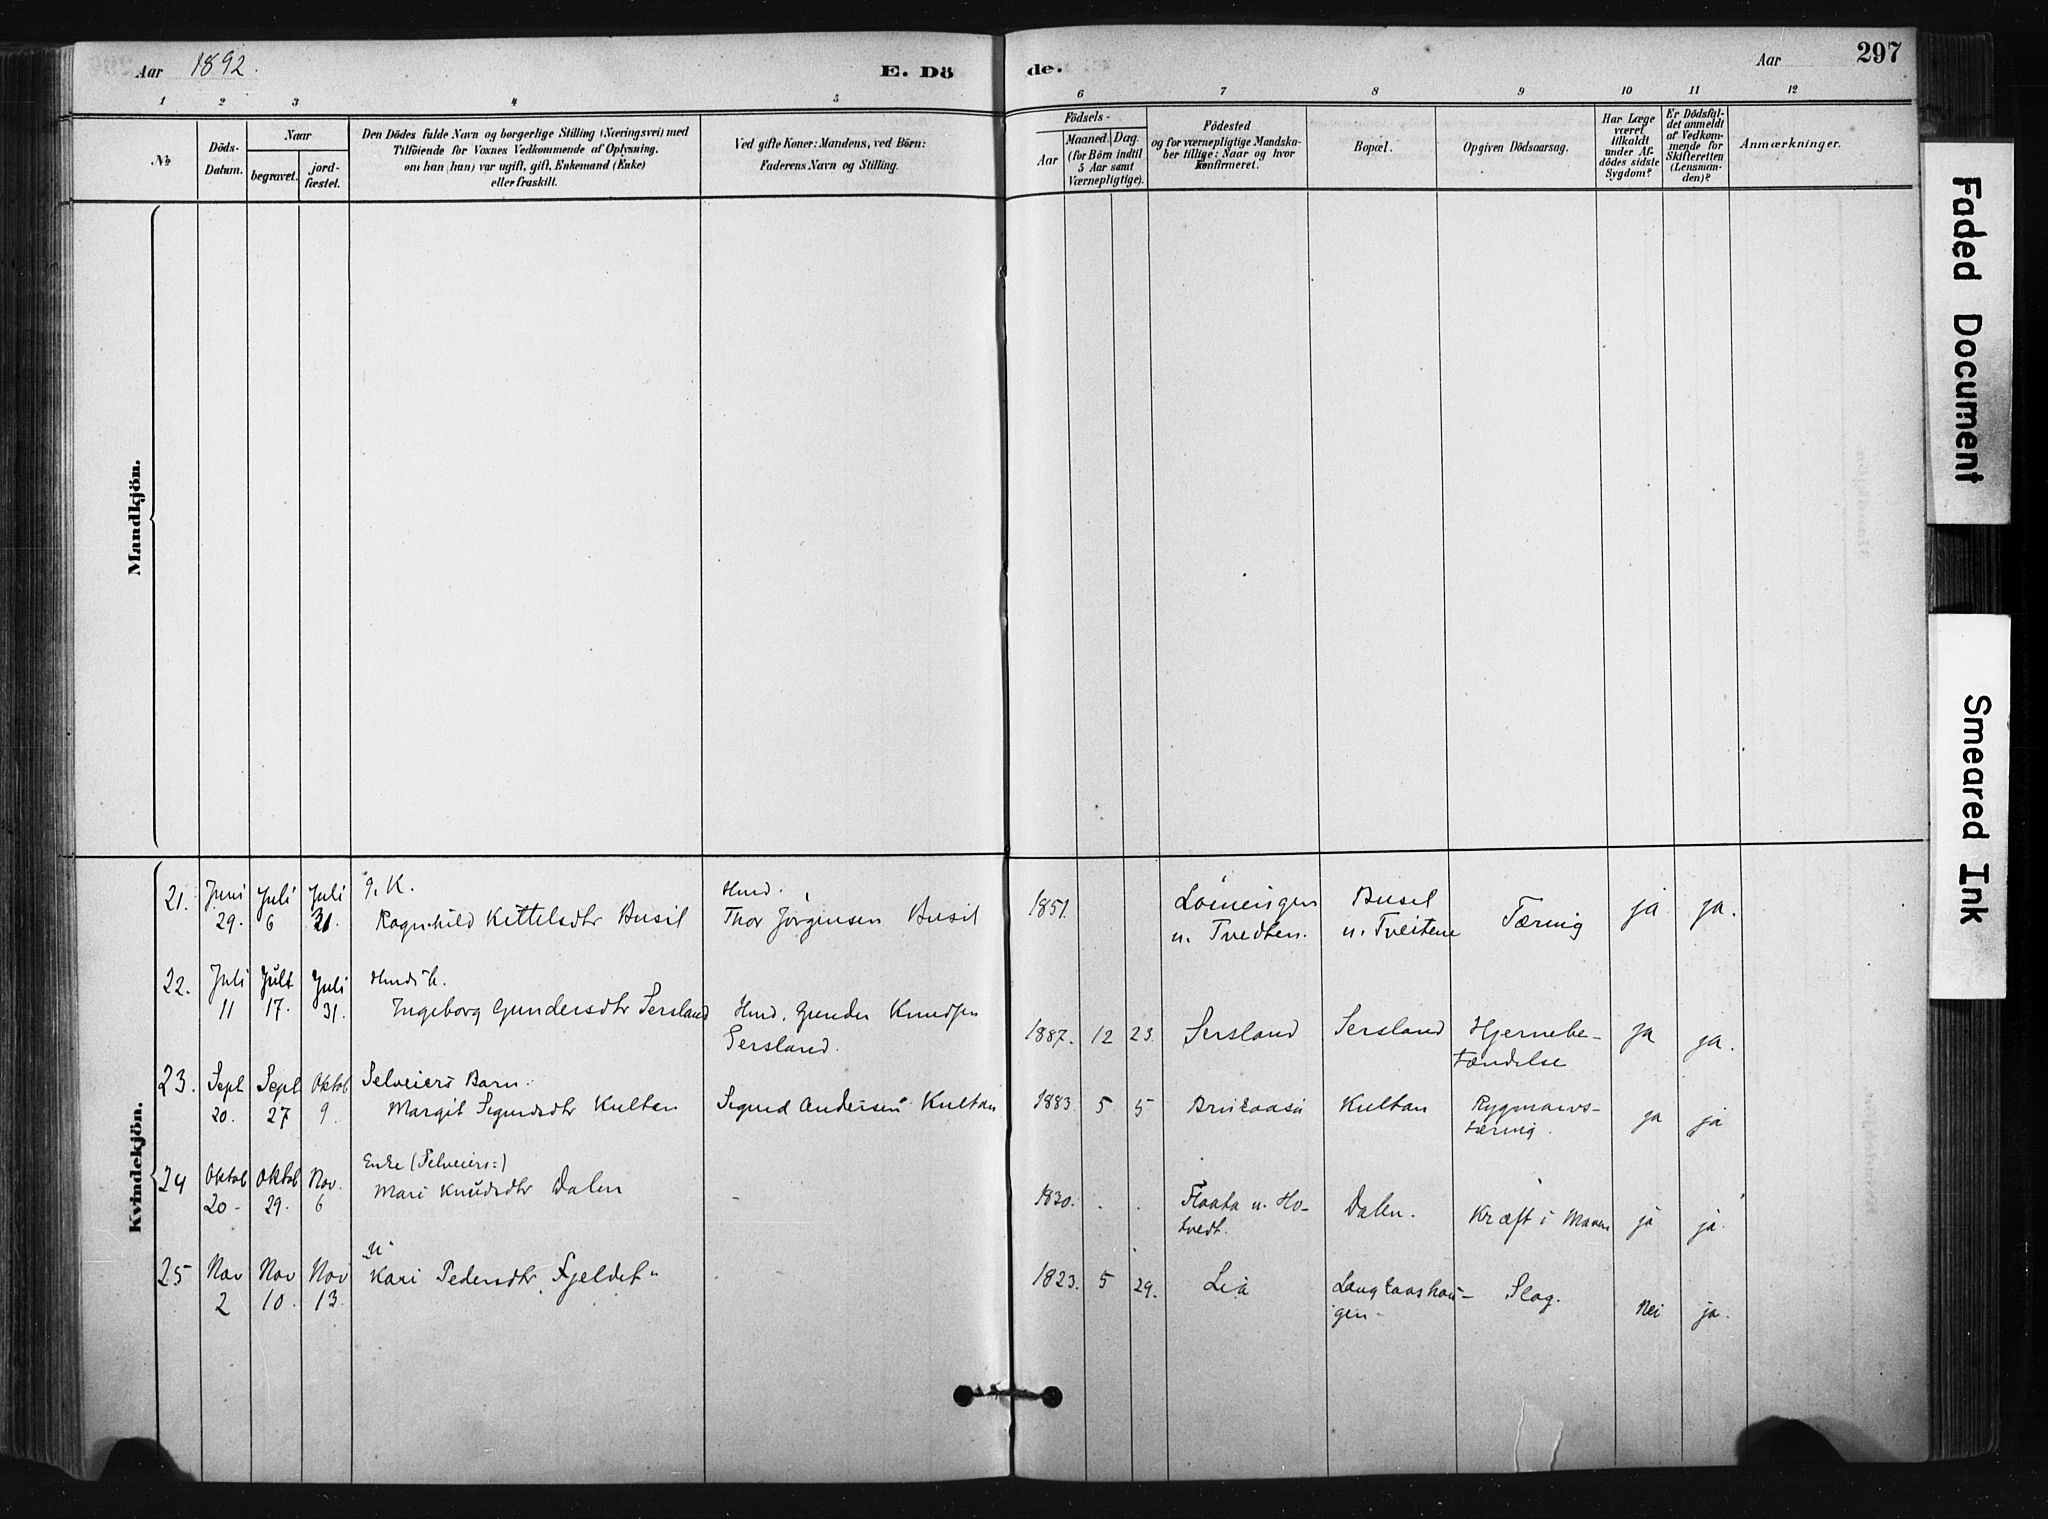 Aar 1892.
E. Dö de.
Aar
297
1 2 3 4 5 6 7 8 9 10 11 12
№
Döds-
Datum.
Naar
begravet.
jord-
fæstet.
Den Dödes fulde Navn og borgerlige Stilling (Næringsvei) med
Tilföiende for Voxnes Vedkommende af Oplysning,
om han (hun) var ugift, gift, Enkemand (Enke)
eller fraskilt.
Ved gifte Koner: Mandens, ved Börn:
Faderens Navn og Stilling.
Födsels-
Aar
Maaned. Dag.
(for Börn indtil
5 Aar samt
Værnepligtige).
Födested
og for værnepligtige Mandska-
ber tillige: Naar og hvor
Konfirmeret.
Bopæl.
Opgiven Dödsaarsag.
Har Læge
været
tilkaldt
under Af-
dödes sidste
Sygdom?
Er Dödsfal-
det anmeldt
af Vedkom-
mende for
Skifteretten
(Lensman-
den)?
Anmærkninger.
Mandkjön.
Kvindekjön.
21. Juni Juli Juli g. K. Hmd. 1851.
29. 6 31. Ragnhild Kittelsdtr Busil Thor Jörgensen Busil
u. Tvedten. u. Tveitene Tæring ja ja.
22. Juli Juli Juli
11 17. 31. Ingeborg Gundersdtr Sersland Hmd. Gunder Knudsen
Sersland.
1887. 12 23. Sersland Sersland Hjernebe-
tændelse ja ja.
23. Sept Sept Oktob Selveiers Barn.
20. 27 9. Margit Sigurdsdtr Kultan Sigurd Andersen Kultan
1883. 5 5 Kultan Rygmarvs-
tæring. ja ja
24 Oktob Oktob Nov. Enke (Selveiers:)
20. 29. 6 Mari Knudsdtr Dalen -
1830. . . Flaata u. Ho-
tvedt. Dalen. Kræft i Maven ja ja.
25 Nov Nov Nov "U"
2 10. 13. Kari Pedersdtr Fjeldet
1823. 5 29. Lia
gen- Slag. Nei ja.
Faded Document
Smeared Ink